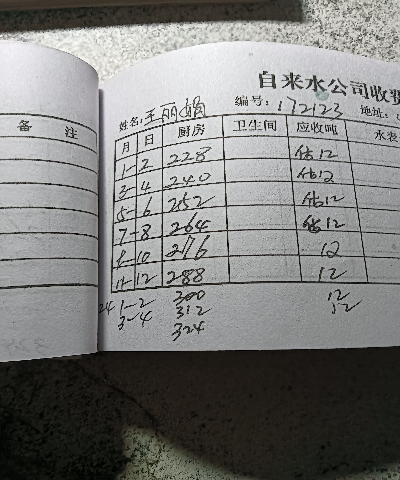 备注
自来水公司收费
姓名:王丽娟 编号:172123 地址:
月 日 厨房 卫生间 应收吨 水表
1-2 228 估12
3-4 240 估12
5-6 252 估12
7-8 264 估12
9-10 276 12
11-12 288 12
24 1-2 300 12
3-4 312 12
324